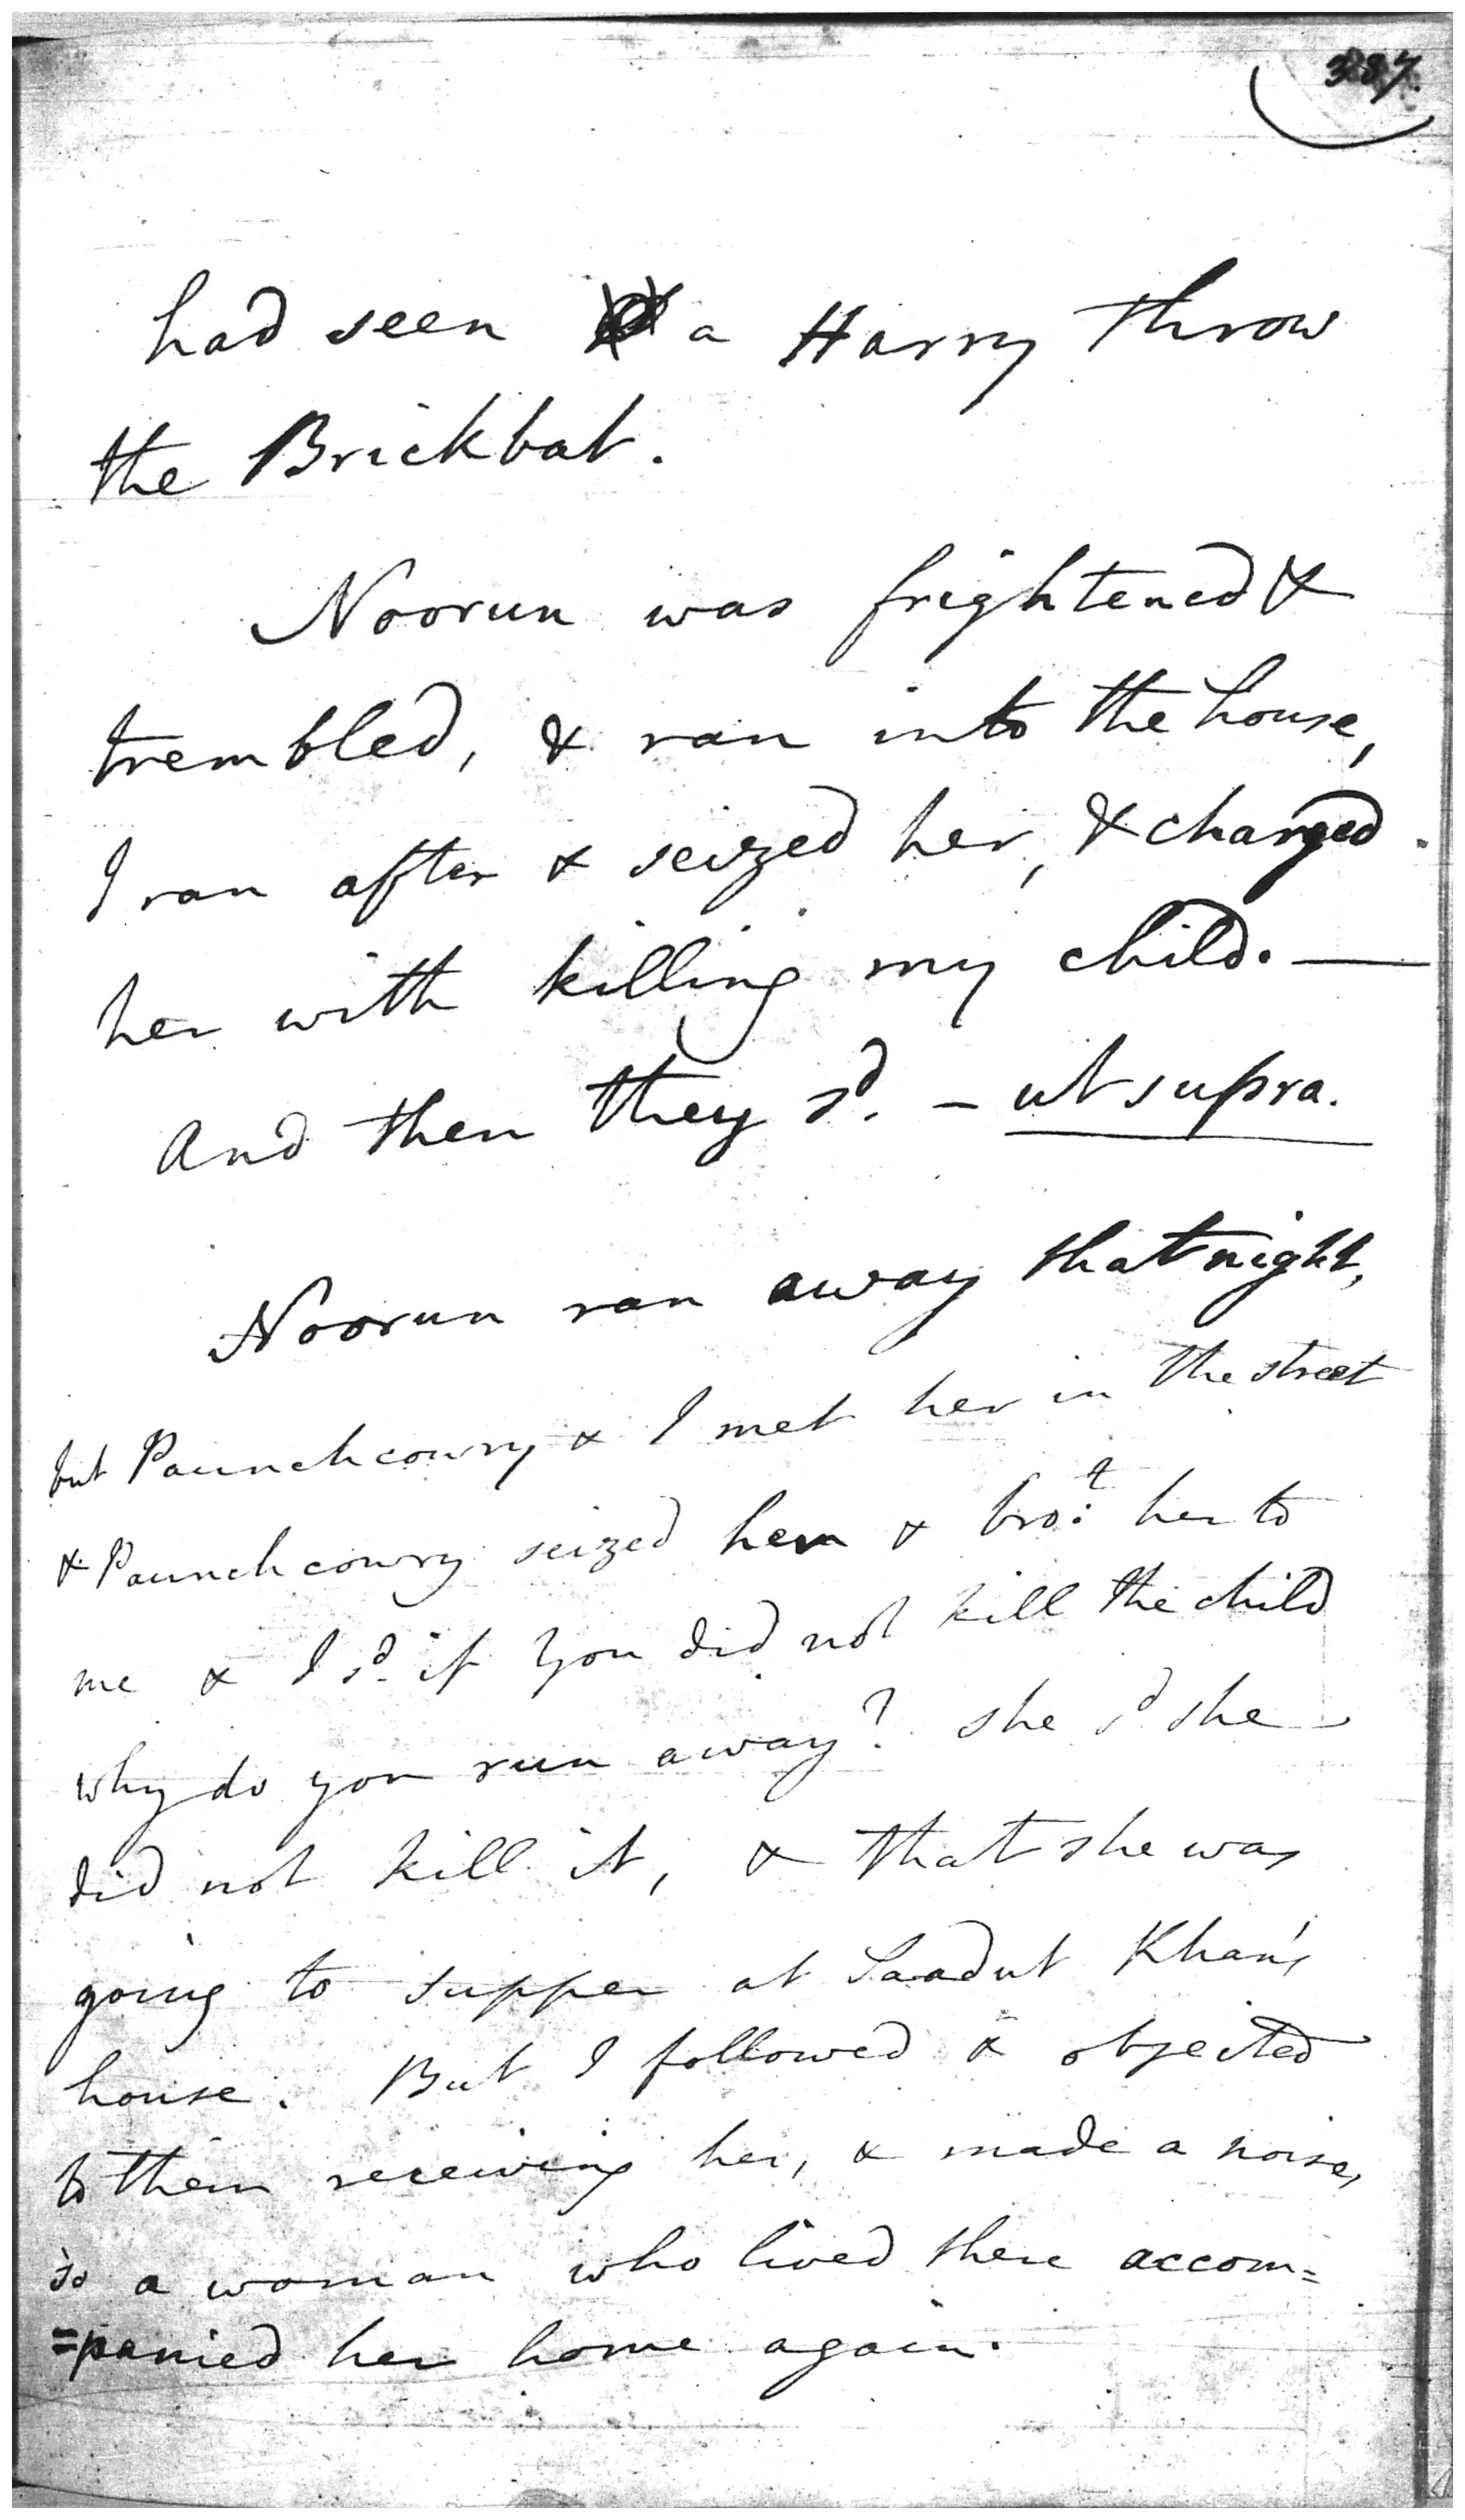 387.
had seen a Harry throw
the Brickbat.
Noorun was frightened &
trembled, & ran into the house,
I ran after & seized her, & charged
her with killing my child. —
And then they sd. — ut supra.
Noorun ran away that night,
but Paunchcowry & I met her in the street
& Paunchcowry seized her & bro:t her to
me & I sd. if you did not kill the child
why do you run away? she sd she
did not kill it, & that she was
going to supper at Saadut Khan's
house. But I followed & objected
to them receiving her, & made a noise,
so a woman who lived there accom=
=panied her home again.